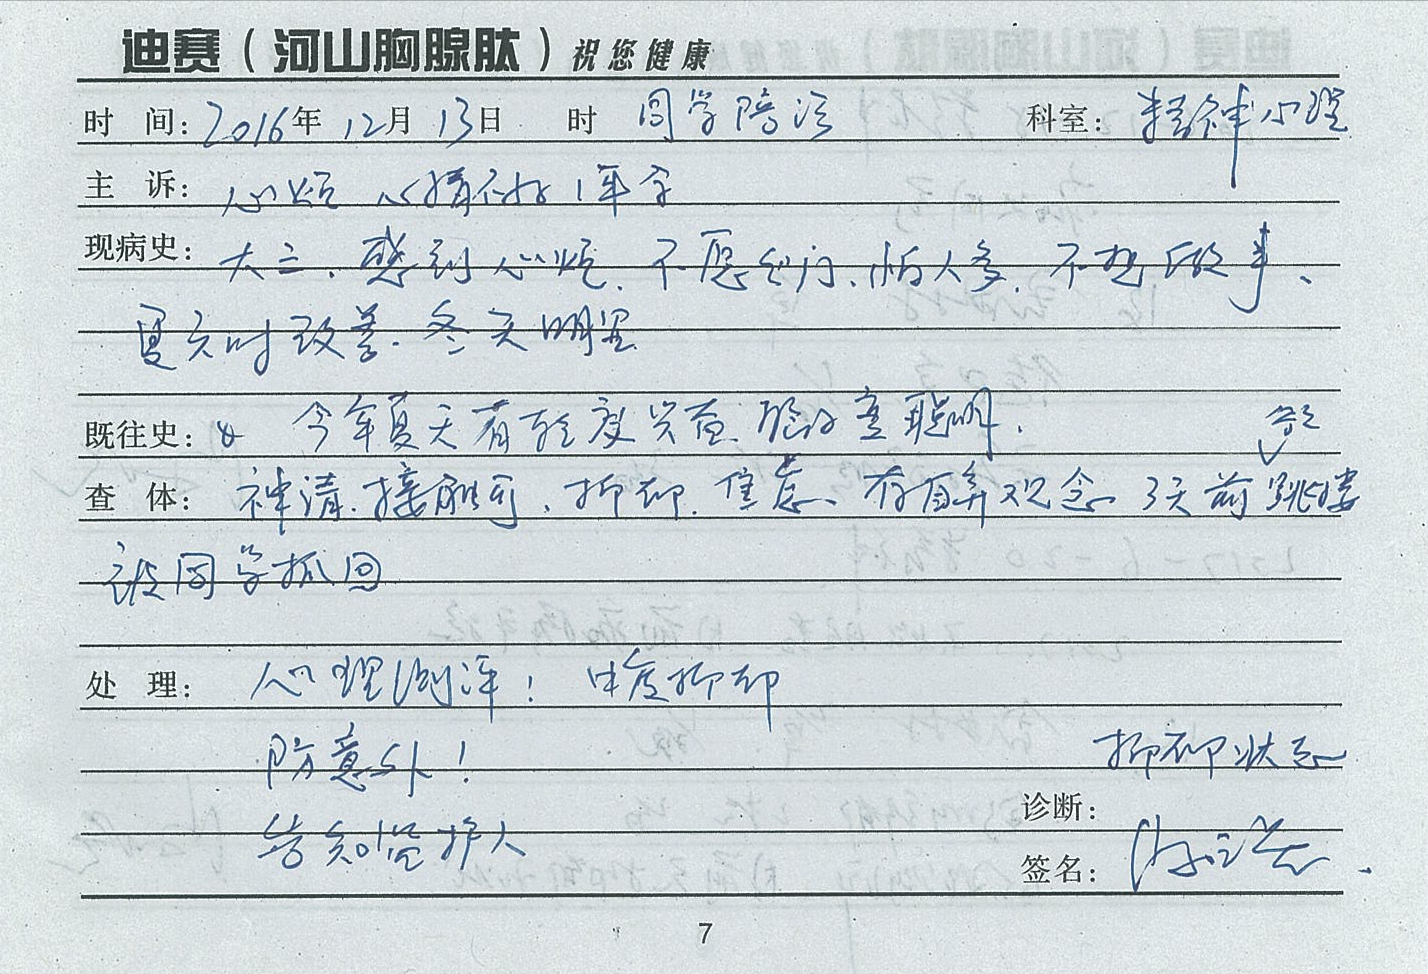 迪赛（河山胸腺肽）祝您健康
时 间: 2016年 12月 13日 时 同学陪诊 科室: 精神心理
主 诉: 心烦 心情不好1年余
现病史: 大二、感到心烦、不愿出门、怕人多、不想做事、
夏天时改善、冬天明显
既往史: 今年夏天有轻度兴奋、脑子变聪明.
查 体: 神清、接触可、抑郁、焦虑、有自弃观念 3天前 跳楼
被同学抓回
处 理: 心理测评! 中度抑郁
防意外!
抑郁状态
诊断:
告知监护人
签名:
7